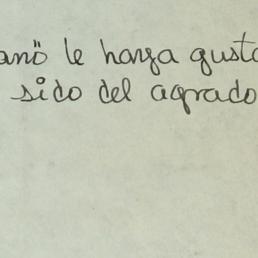 anö le haya gusta
sido del agrado